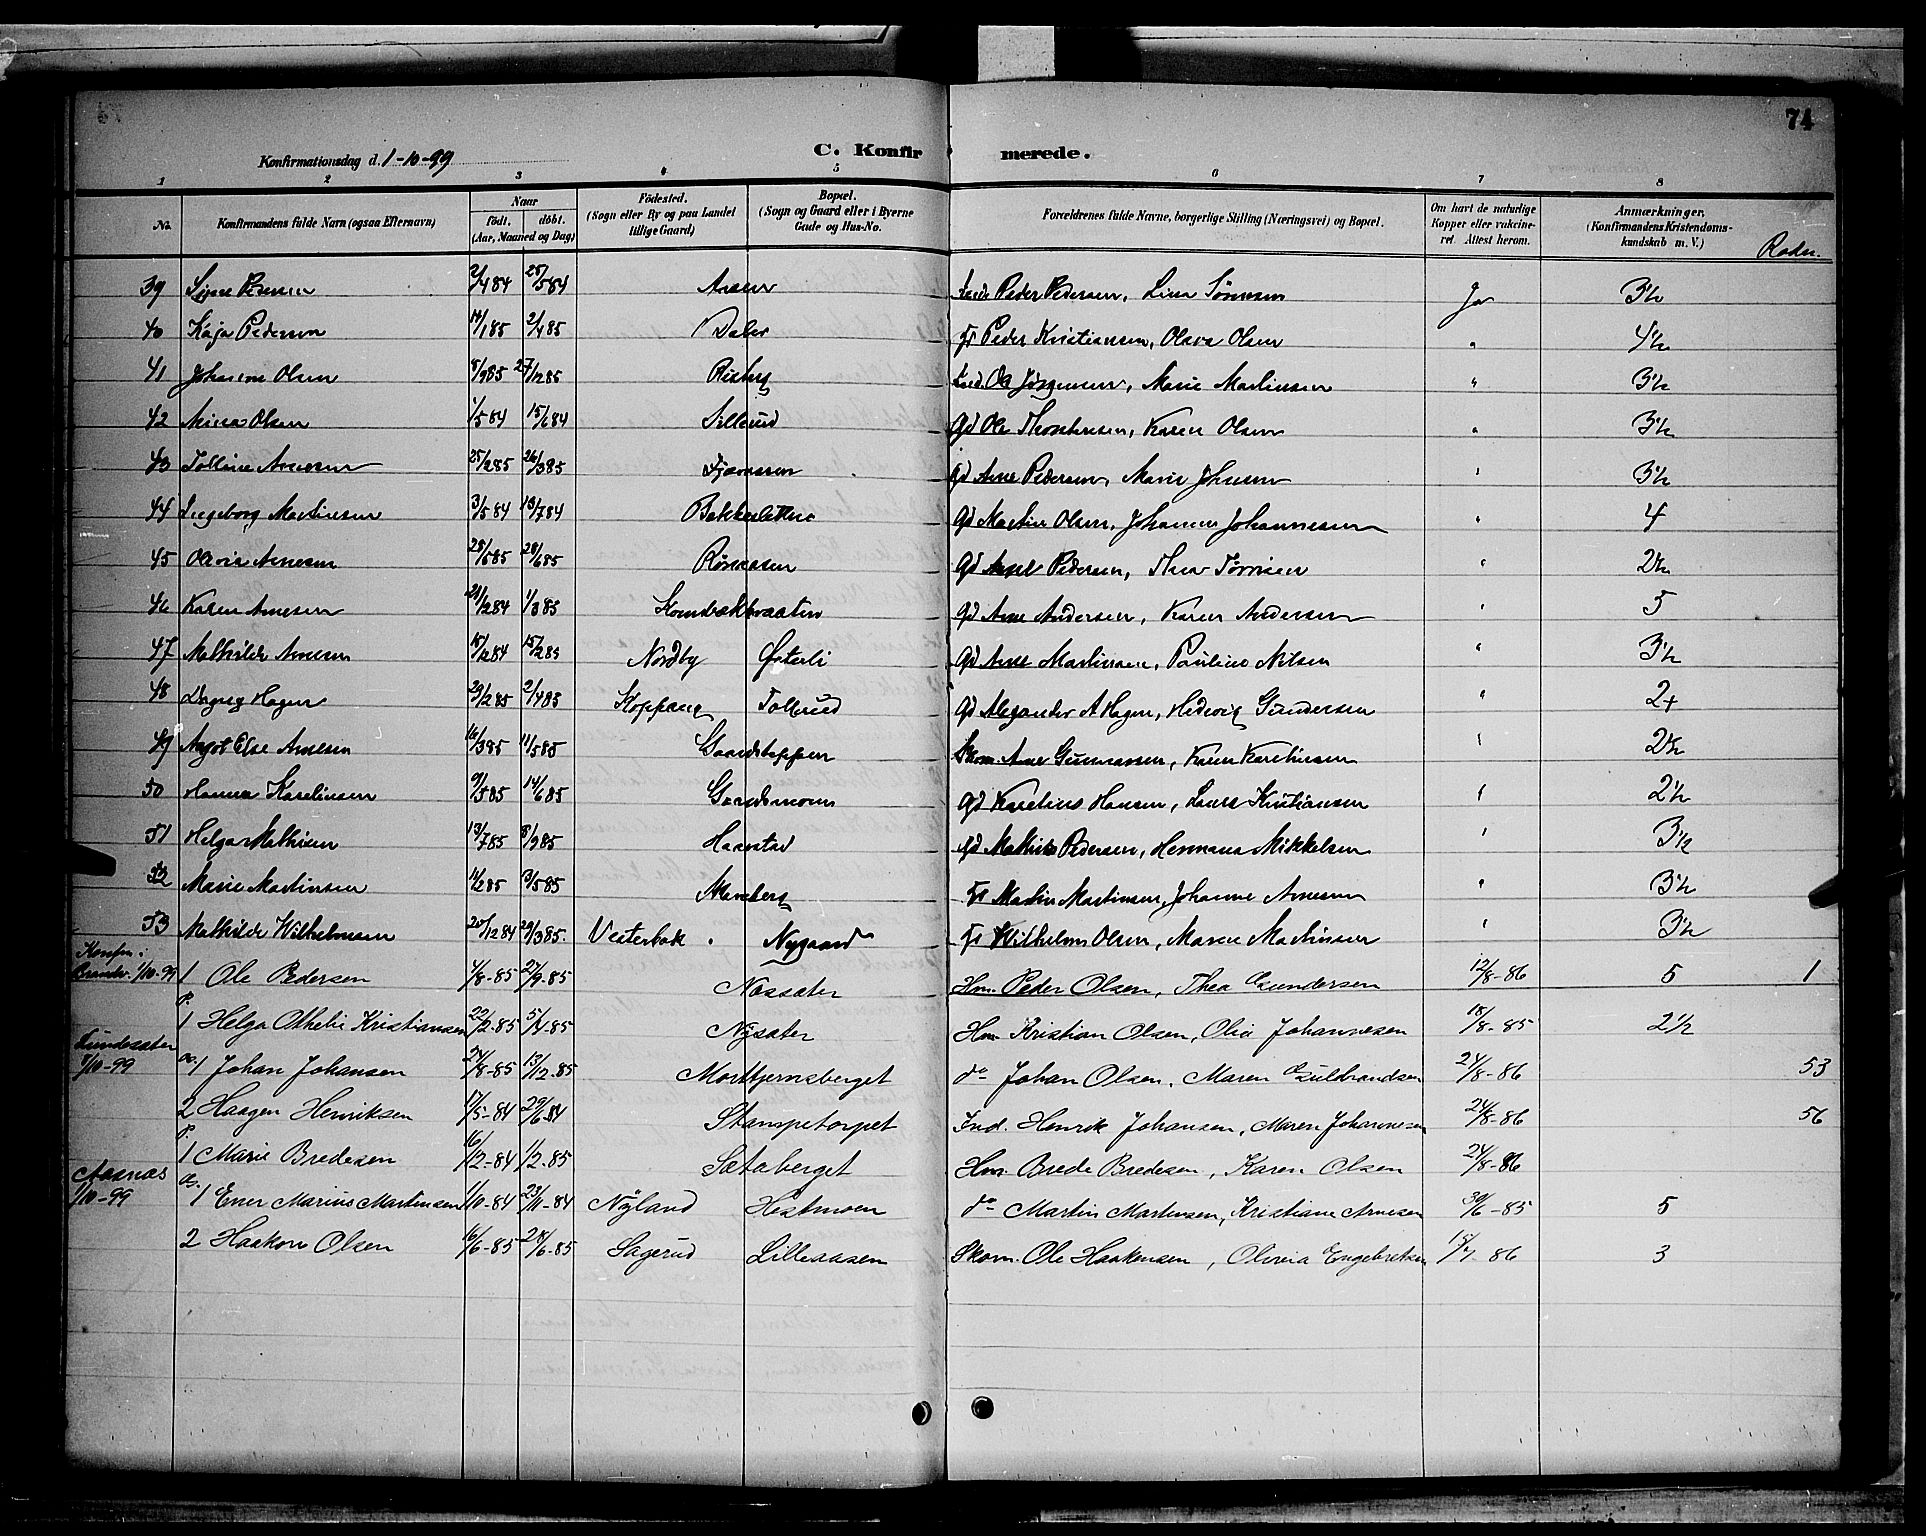 74
Konfirmationsdag d. 1-10-99
C. Konfirmerede.
1 2 3 4 5 6 7 8
No. Konfirmandens fulde Navn (ogsaa Efternavn) Naar født. døbt. (Aar, Maaned og Dag) Fødested. (Sogn eller By og paa Landet tillige Gaard.) Bopæl. (Sogn og Gaard eller i Byerne Gade og Hus-No. Forældrenes fulde Navne, borgerlige Stilling (Næringsvei) og Bopæl. Om havt de naturlige Kopper eller vakcineret. Attest herom. Anmærkninger. (Konfirmandens Kristendomskundskab m. V.) Roden.
39 Signe Pedersen 2/4 84 25/5 84 Aasen Peder Pedersen, Lina Tønnesen Ja 3½
40 Kaja Pedersen 14/1 85 2/4 85 Daler Peder Kristiansen, Olava Olsen " 4½
41 Johanne Olsen 8/9 85 27/12 85 Risberg Ole Jørgensen, Marie Martinsen " 3½
42 Mina Olsen 1/5 84 15/6 84 Sillerud Gd Ole Thorstensen, Karen Olsen " 3½
43 Tolline Arnesen 25/2 85 26/3 85 Gd Arne Pedersen, Marie Johnsen " 3½
44 Ingeborg Martinsen 3/5 84 13/7 84 Gd Martin Olsen, Johanne Johannesen " 4
45 Olivia Arnesen 25/5 85 28/6 85 Rønaasen Gd Arne Pedersen, Thea Tørrisen " 2½
46 Karen Arnesen 28/12 84 1/3 85 Gd Arne Andersen, Karen Andersen " 5
47 Mathilde Arnesen 15/12 84 15/2 85 Nordby Østerli Gd Arne Martinsen, Pauline Nilsen " 3½
48 Dagny Hagen 23/2 85 2/4 85 Koppang Tollerud Gd Alexander A Hagen, Hedevig Gundersen " 2+
49 Aagot Else Arnesen 16/3 85 11/5 85 Gaardstappen Skom. Arne Gunnarsen, Karen Karelinsen " 2½
50 Hanna Karelinsen 9/5 85 14/6 85 Gaardsmoen Gd Karelius Hansen, Laura Kristiansen " 2½
51 Helga Mathisen 13/7 85 8/9 85 Haarstad Gd Mathis Pedersen, Hermana Mikkelsen " 3½
52 Marie Martinsen 11/2 85 3/5 85 Martin Martinsen, Johanne Arnesen " 3½
53 Mathilde Wilhelmsen 20/12 84 29/3 85. Vesterbak Nygaard Wilhelm Olsen, Maren Martinsen " 3½
Konfm. i Brandv. 1/10-99
1 Ole Pedersen 4/8-85 27/9-85 Næssæter Hm. Peder Olsen, Thea Gundersen 12/8-86 5 1
P. 1 Helga Othelie Kristiansen 22/2-85 5/4-85 Nysæter Hm Kristian Olsen, Olia Johannesen 18/8-85 2½
Lundesæter 8/10-99
a. 1 Johan Johansen 24/8-85 13/12-85 Mortkjernsberget do Johan Olsen, Maren Guldbrandsen 24/8-86 53
2 Haagen Henriksen 17/5-84 29/6-84 Stampetorpet Ind. Henrik Johansen, Maren Johannesen 24/8-86 56
P. 1 Marie Bredesen 16/12-84 1/2-85 Sætaberget Hm. Brede Bredesen, Karen Olsen 24/8-86
Aasnæs 1/10-99
a. 1 Ener Marius Martinsen 1/10-84 23/11-84 Nyland Hestmoen do Martin Martinsen, Kristiane Arnesen 30/6-85 5
2 Haakon Olsen 16/6-85 28/6-85 Sagerud Lilleaasen Skom. Ole Haakensen, Olivia Engebretsen 15/7-86 3